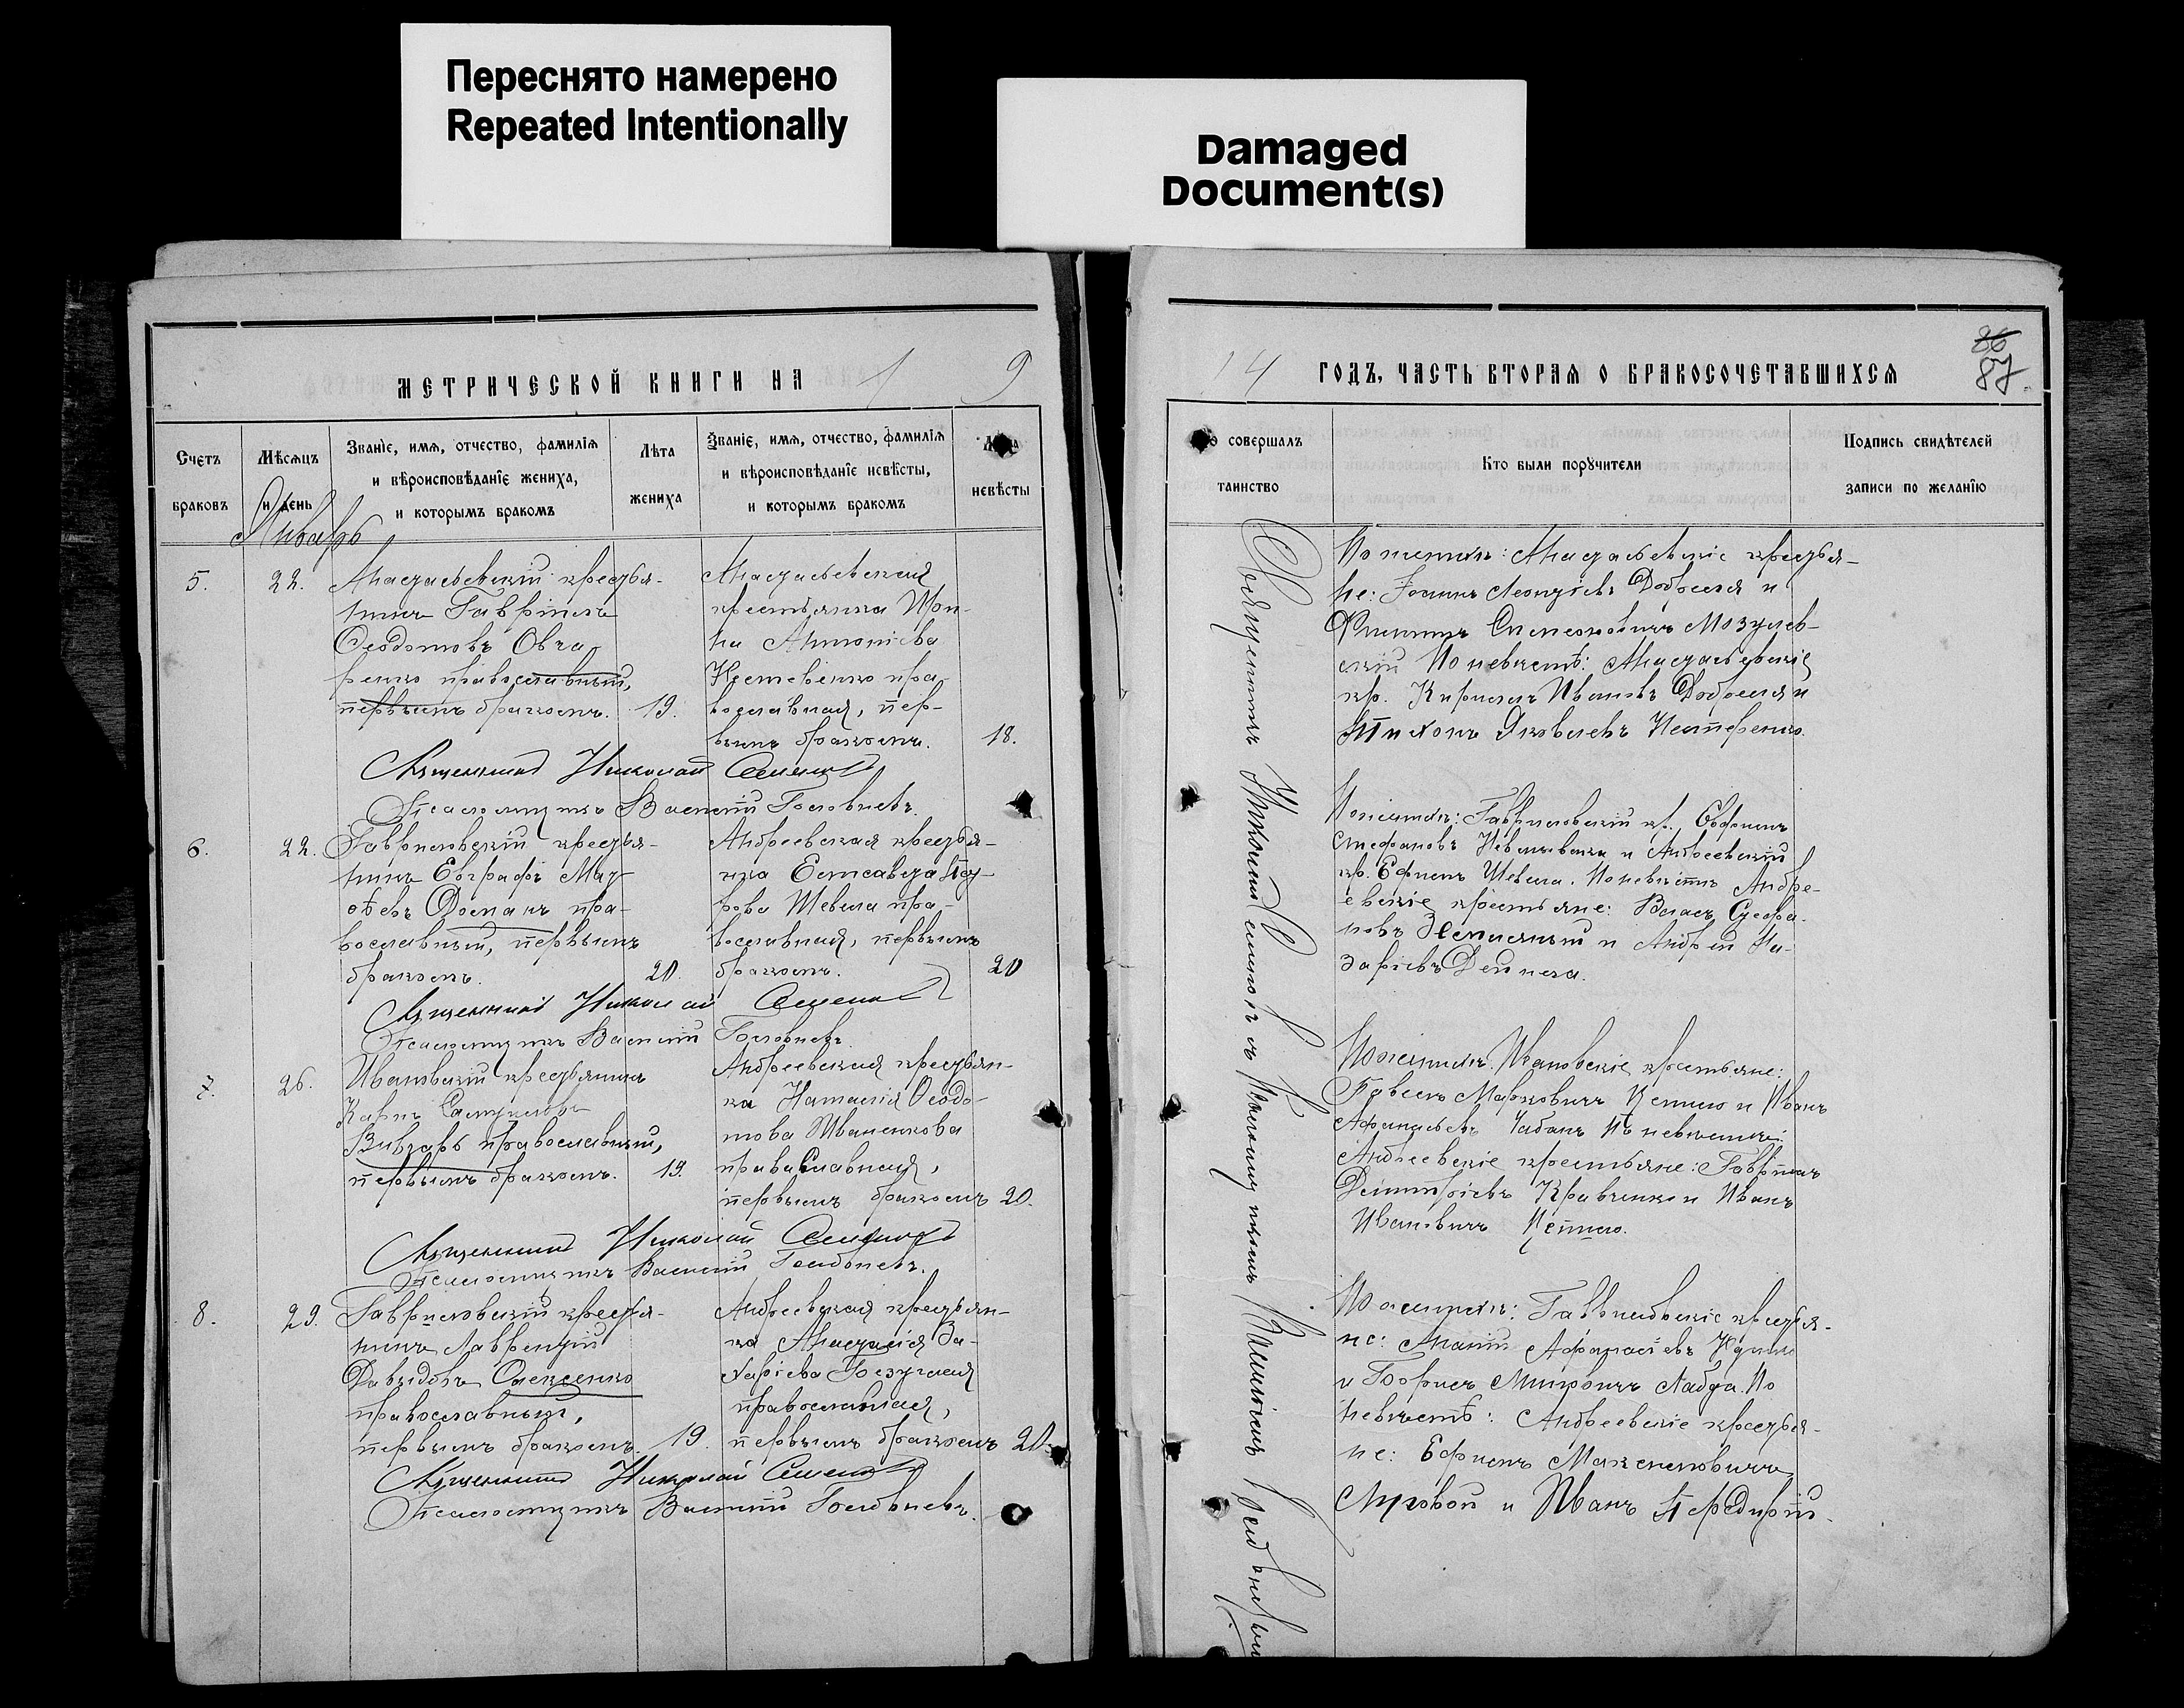 Переснято намерено
Repeated Intentionally
Damaged
Document(s)
МЕТРИЧЕСКОЙ КНИГИ НА 1 9
14 ГОДЪ, ЧАСТЬ ВТОРАЯ О БРАКОСОЧЕТАВШИХСЯ
86
87.
Счетъ
браковъ
Мѣсяцъ
и день
Званіе, имя, отчество, фамилія
и вѣроисповѣданіе жениха,
и которымъ бракомъ
Лѣта
жениха
Званіе, имя, отчество, фамилія
и вѣроисповѣданіе невѣсты,
и которымъ бракомъ
невѣсты
совершалъ
таинство
Кто были поручители
Подпись свидѣтелей
записи по желанію
Январь
5.
22.
Анастасьевскій крестья-
нинъ Гавріилъ
Ѳеодотовъ Овча
ренко православный,
первымъ бракомъ.
19.
Анастасьевская
крестьянка Ири-
на Антоніева
Нестеренко пра
вославная, пер-
вымъ бракомъ.
18.
Священникъ Николай Семеновъ
Псаломщикъ Василій
6.
22.
Гавриловскій крестья-
нинъ Евграфъ Мат
ѳѣевъ пра-
вославный, первымъ
бракомъ.
20.
Андреевская крестья-
нка Елисавета
Шевела пра-
вославная, первымъ
бракомъ.
20
Священникъ Николай Семеновъ
Псаломщикъ Василій
7.
26.
Ивановскій крестьянинъ
Карпъ Самуиловъ
православный,
первымъ бракомъ.
19.
Андреевская крестьян-
ка Наталія Ѳеодо-
това Иваненкова
православная,
первымъ бракомъ
20.
Священникъ Николай Семеновъ
Псаломщикъ Василій
8.
29.
Гавриловскій крестья-
нинъ Лаврентій
Давыдовъ Алексенко
православный,
первымъ бракомъ.
19.
Андреевская крестьян-
ка Анастасія За-
харіева
православная,
первымъ бракомъ
20.
Священникъ Николай Семеновъ
Псаломщикъ Василій
Священникъ Николай Семеновъ съ Псаломщикомъ Василіемъ
По женихѣ: Анастасьевскіе крестья-
не: Іоаннъ Леонтіевъ и
Филиппъ Симеоновичъ
По невѣстѣ: Анастасьевскіе
кр. Кириллъ Ивановъ и
Тихонъ Яковлевъ Нестеренко.
По женихѣ: Гавриловскій кр.
Стефановъ и Андреевскій
кр. Ефимъ Шевела. По невѣстѣ Андре-
евскіе крестьяне: Власъ Стефа-
новъ и Андрей На-
заріевъ Дейнека.
По женихѣ: Ивановскіе крестьяне:
Павелъ Марковичъ и Иванъ
Афанасьевъ Чабанъ По невѣстѣ:
Андреевскіе крестьяне: Гавріилъ
Димитріевъ Кравченко и Иванъ
Ивановичъ
По женихѣ: Гавриловскіе крестья-
не: Ананій Афанасіевъ
и Миронъ По
невѣстѣ: Андреевскіе крестья-
не: Ефимъ Максимовичъ
Луговой и Иванъ